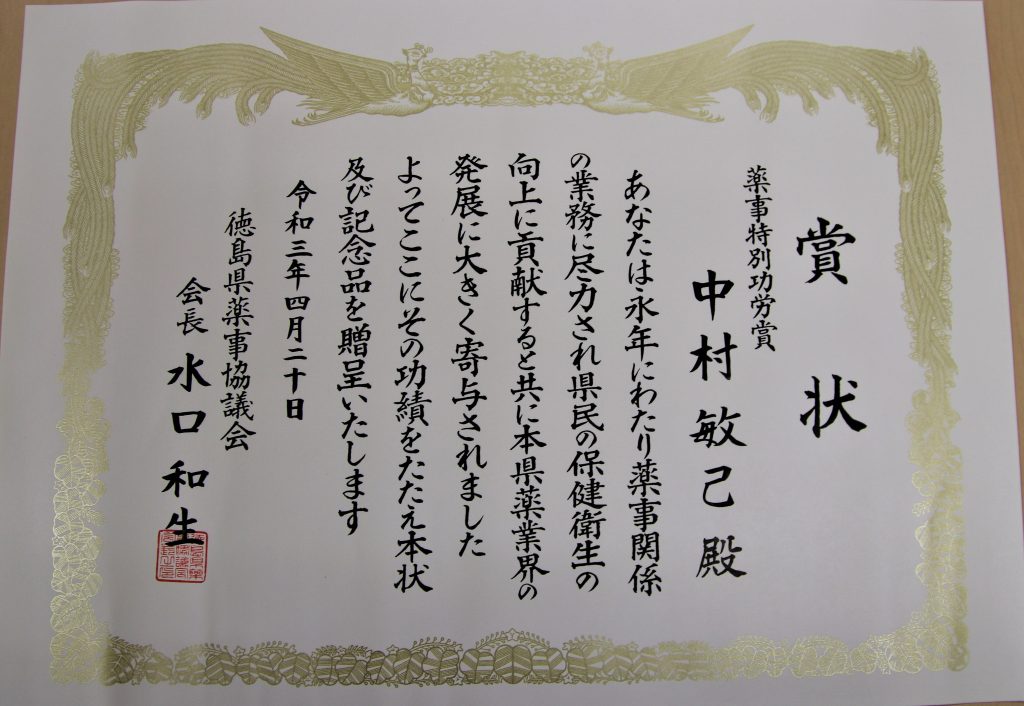 賞状
薬事特別功労賞
中村敏己殿
あなたは永年にわたり薬事関係
の業務に尽力され県民の保健衛生の
向上に貢献すると共に本県薬業界の
発展に大きく寄与されました
よってここにその功績をたたえ本状
及び記念品を贈呈いたします
令和三年四月二十日
徳島県薬事協議会
会長 水口和生